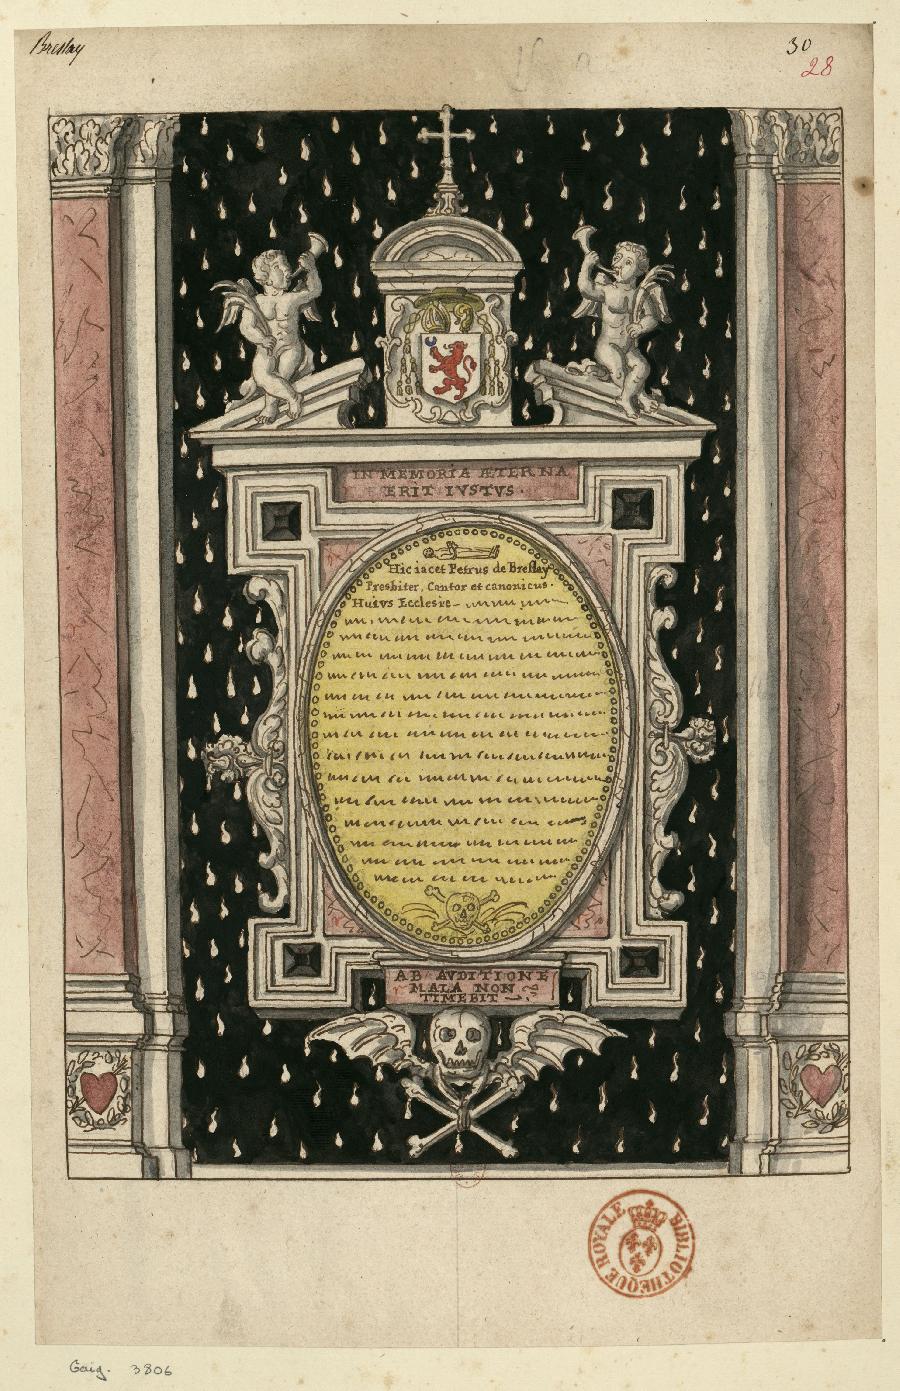 Breslay
30
28
IN MEMORIA ÆTERNA
ERIT IVSTVS.
Hic iacet Petrus de Breslay
Presbiter, Cantor et canonicus.
Huivs Ecclesie
AB AVDITIONE
MALA NON
TIMEBIT
BIBLIOTHEQUE ROYALE
Gaig. 3806